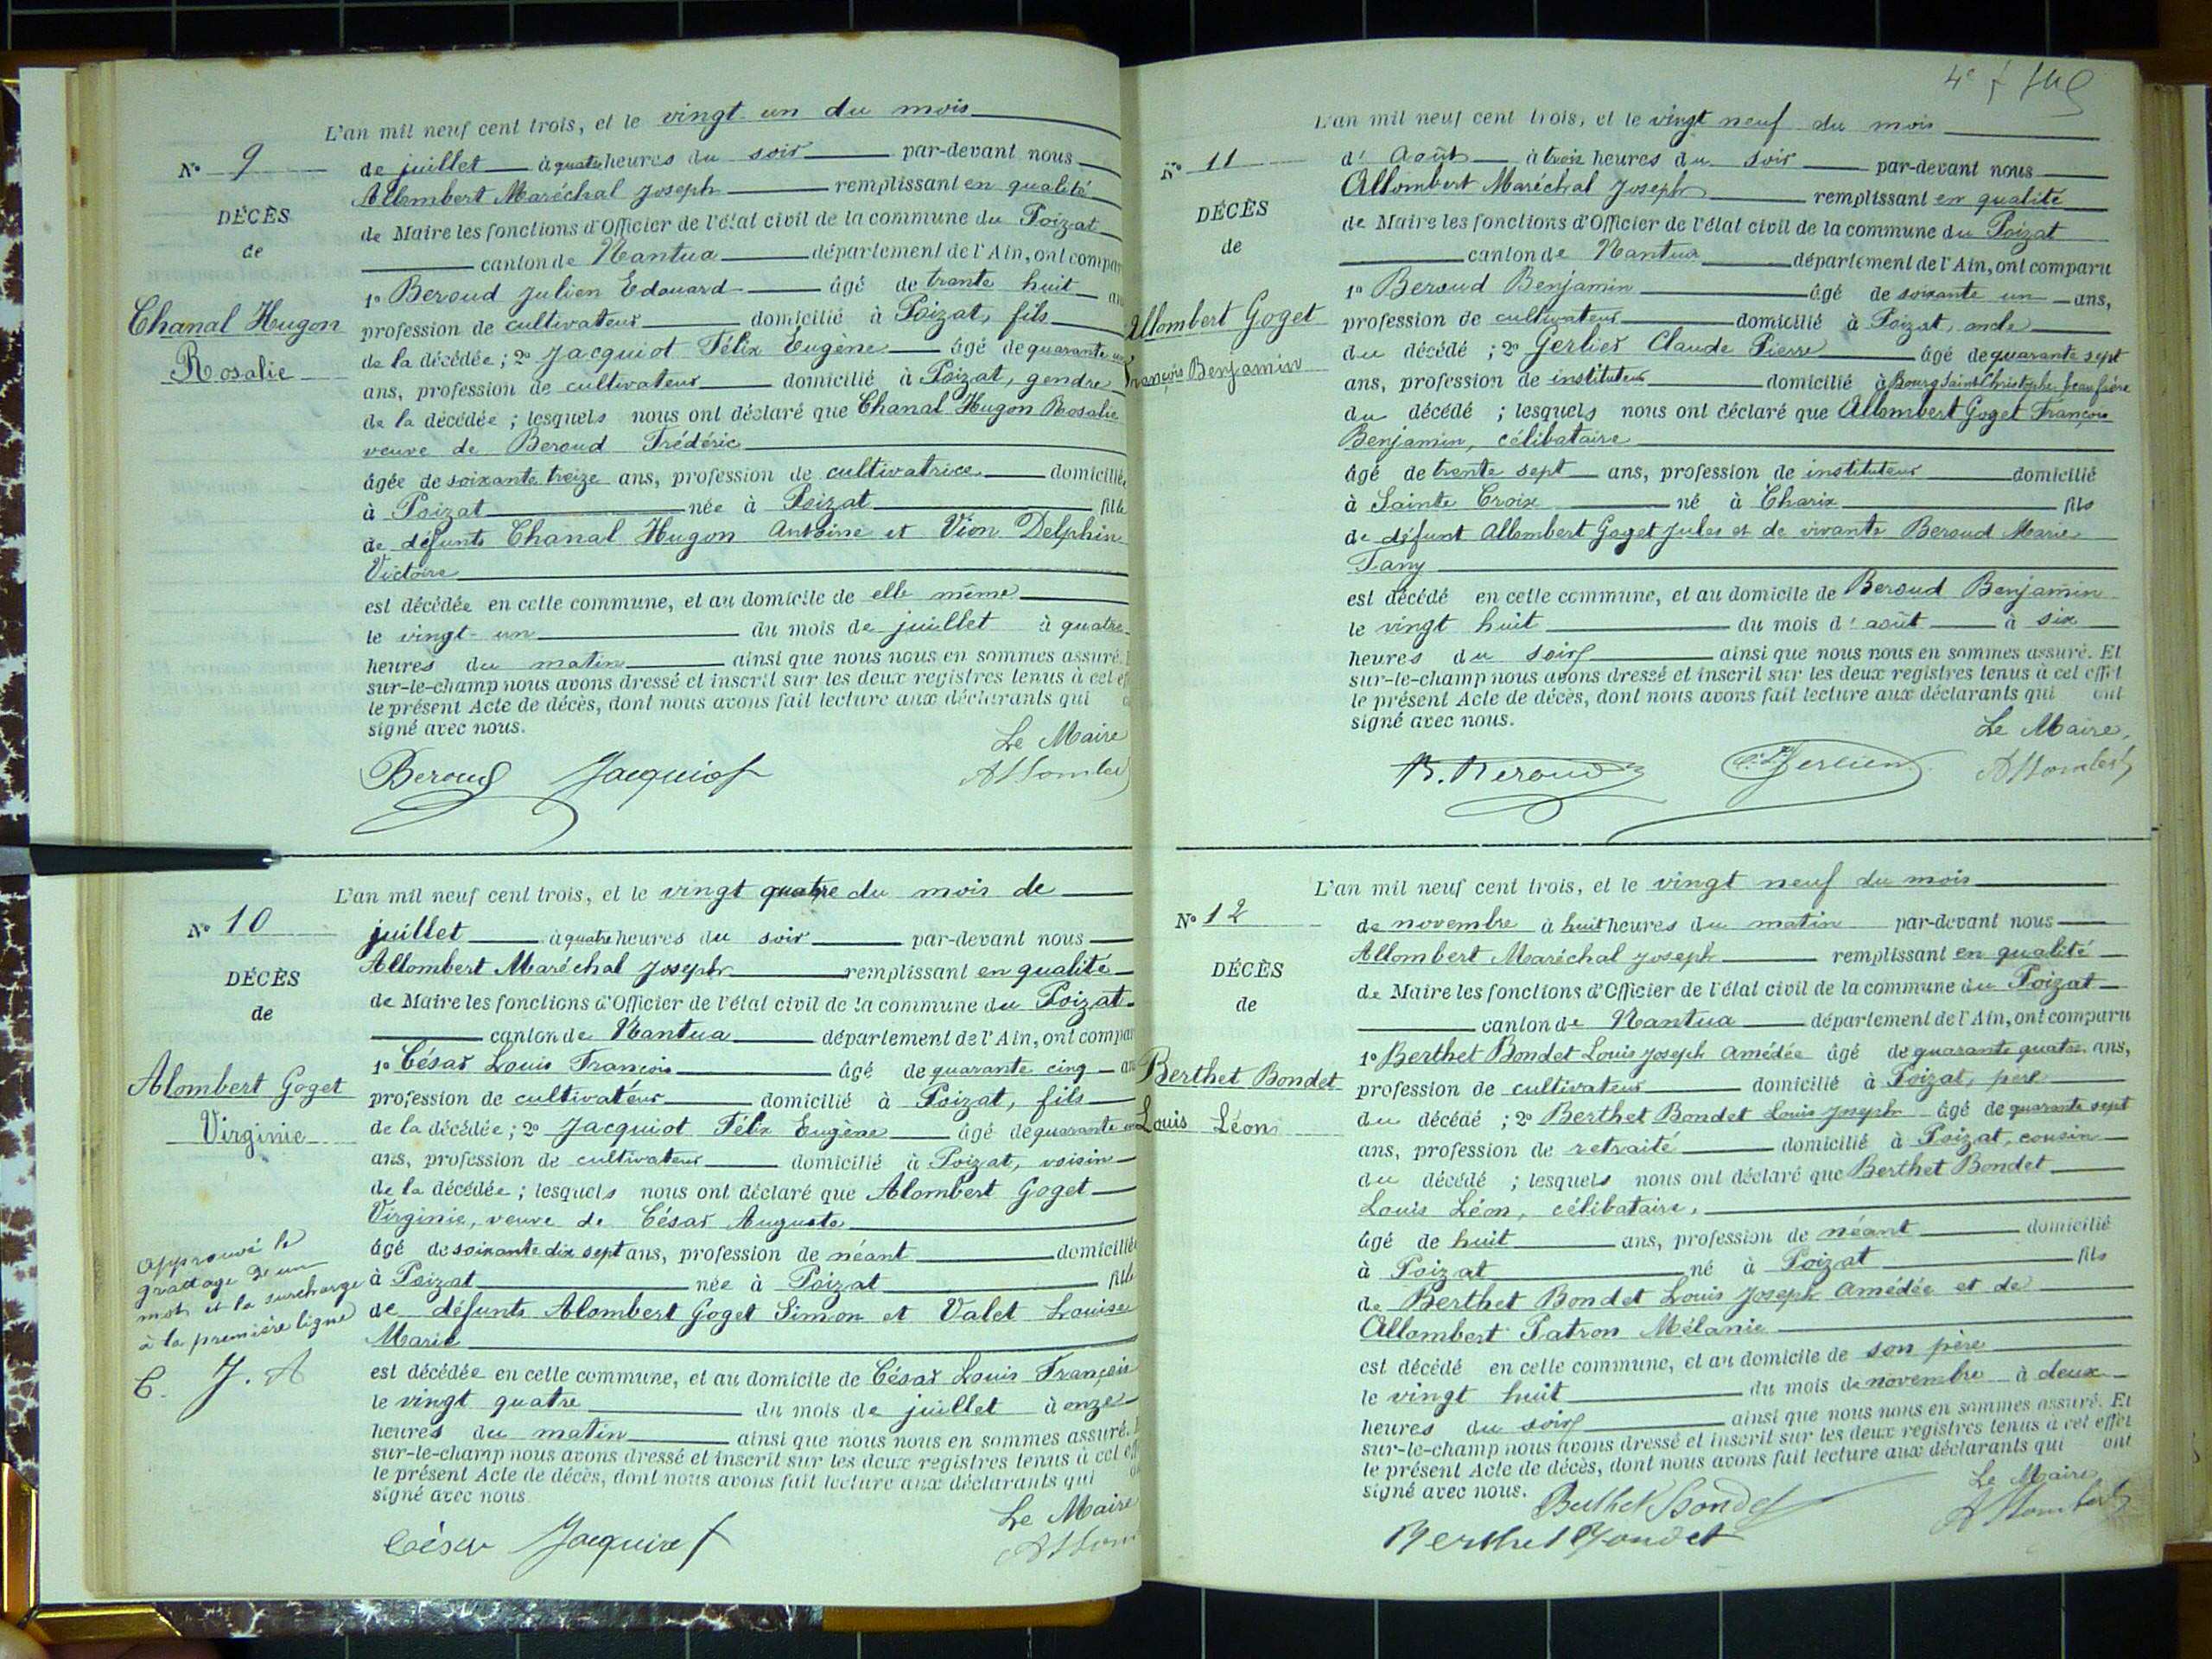 L'an mil neuf cent trois, et le vingt un du mois
N° 9
de juillet à quatre heures du soir par-devant nous
Allombert Maréchal Joseph remplissant en qualité
DÉCÈS
de Maire les fonctions d'Officier de l'état civil de la commune du Poizat
de
canton de Nantua département de l'Ain, ont compar
1° Beroud Julien Edouard âgé de trente huit an
Chanal Hugon
profession de cultivateur domicilié à Poizat, fils
Rosalie
de la décédée ; 2° Jacquiot Félix Eugène âgé de quarante un
ans, profession de cultivateur domicilié à Poizat, gendre
de la décédée ; lesquels nous ont déclaré que Chanal Hugon Rosalie
veuve de Beroud Frédéric
âgée de soixante treize ans, profession de cultivatrice domiciliée
à Poizat née à Poizat fille
de défunts Chanal Hugon Antoine et Vion Delphine
Victoire
est décédée en cette commune, et au domicile de elle même
le vingt-un du mois de juillet à quatre
heures du matin ainsi que nous nous en sommes assuré.
sur-le-champ nous avons dressé et inscrit sur les deux registres tenus à cet ef
le présent Acte de décès, dont nous avons fait lecture aux déclarants qui
signé avec nous.
Le Maire
Beroud Jacquiot Allombert
L'an mil neuf cent trois, et le vingt quatre du mois de
N° 10
juillet à quatre heures du soir par-devant nous
Allombert Maréchal Joseph remplissant en qualité
DÉCÈS
de Maire les fonctions d'Officier de l'état civil de la commune du Poizat
de
canton de Nantua département de l'Ain, ont compar
1° César Louis François âgé de quarante cinq an
Alombert Goget
profession de cultivateur domicilié à Poizat, fils
Virginie
de la décédée ; 2° Jacquiot Félix Eugène âgé de quarante un
ans, profession de cultivateur domicilié à Poizat, voisin
de la décédée ; lesquels nous ont déclaré que Alombert Goget
Virginie, veuve de César Auguste
âgé de soixante dix sept ans, profession de néant domiciliée
à Poizat née à Poizat fille
de défunts Alombert Goget Simon et Valet Louise
Marie
Approuvé le
grattage de un
mot et la surcharge
à la première ligne
C. J. A
est décédée en cette commune, et au domicile de César Louis François
le vingt quatre du mois de juillet à onze
heures du matin ainsi que nous nous en sommes assuré.
sur-le-champ nous avons dressé et inscrit sur les deux registres tenus à cet eff
le présent Acte de décès, dont nous avons fait lecture aux déclarants qui
signé avec nous
Le Maire
César Jacquiot Allom
4e f
L'an mil neuf cent trois, et le vingt neuf du mois
N° 11
d'Août à trois heures du soir par-devant nous
Allombert Maréchal Joseph remplissant en qualité
DÉCÈS
de Maire les fonctions d'Officier de l'état civil de la commune du Poizat
de
canton de Nantua département de l'Ain, ont comparu
1° Beroud Benjamin âgé de soixante un ans,
Allombert Goget
profession de cultivateur domicilié à Poizat, oncle
François Benjamin
du décédé ; 2° Gerlier Claude Pierre âgé de quarante sept
ans, profession de instituteur domicilié à Bourg Saint Christophe beau frère
du décédé ; lesquels nous ont déclaré que Allombert Goget François
Benjamin, célibataire
âgé de trente sept ans, profession de instituteur domicilié
à Sainte Croix né à Charix fils
de défunt Allombert Goget Jules et de vivante Beroud Marie
Fany
est décédé en cette commune, et au domicile de Beroud Benjamin
le vingt huit du mois d'août à six
heures du soir ainsi que nous nous en sommes assuré. Et
sur-le-champ nous avons dressé et inscrit sur les deux registres tenus à cet effet
le présent Acte de décès, dont nous avons fait lecture aux déclarants qui ont
signé avec nous.
Le Maire,
B. Beroud C. P. Gerlier Allombert
L'an mil neuf cent trois, et le vingt neuf du mois
N° 12
de novembre à huit heures du matin par-devant nous
Allombert Maréchal Joseph remplissant en qualité
DÉCÈS
de Maire les fonctions d'Officier de l'état civil de la commune du Poizat
de
canton de Nantua département de l'Ain, ont comparu
1° Berthet Bondet Louis Joseph Amédée âgé de quarante quatre ans,
Berthet Bondet
profession de cultivateur domicilié à Poizat, père
Louis Léon
du décédé ; 2° Berthet Bondet Louis Joseph âgé de quarante sept
ans, profession de retraité domicilié à Poizat, cousin
du décédé ; lesquels nous ont déclaré que Berthet Bondet
Louis Léon, célibataire,
âgé de huit ans, profession de néant domicilié
à Poizat né à Poizat fils
de Berthet Bondet Louis Joseph Amédée et de
Allombert Patron Mélanie
est décédé en cette commune, et au domicile de son père
le vingt huit du mois de novembre à deux
heures du soir ainsi que nous nous en sommes assuré. Et
sur-le-champ nous avons dressé et inscrit sur les deux registres tenus à cet effet
le présent Acte de décès, dont nous avons fait lecture aux déclarants qui ont
signé avec nous.
Le Maire
Berthet Bondet Allombert
Berthet Bondet